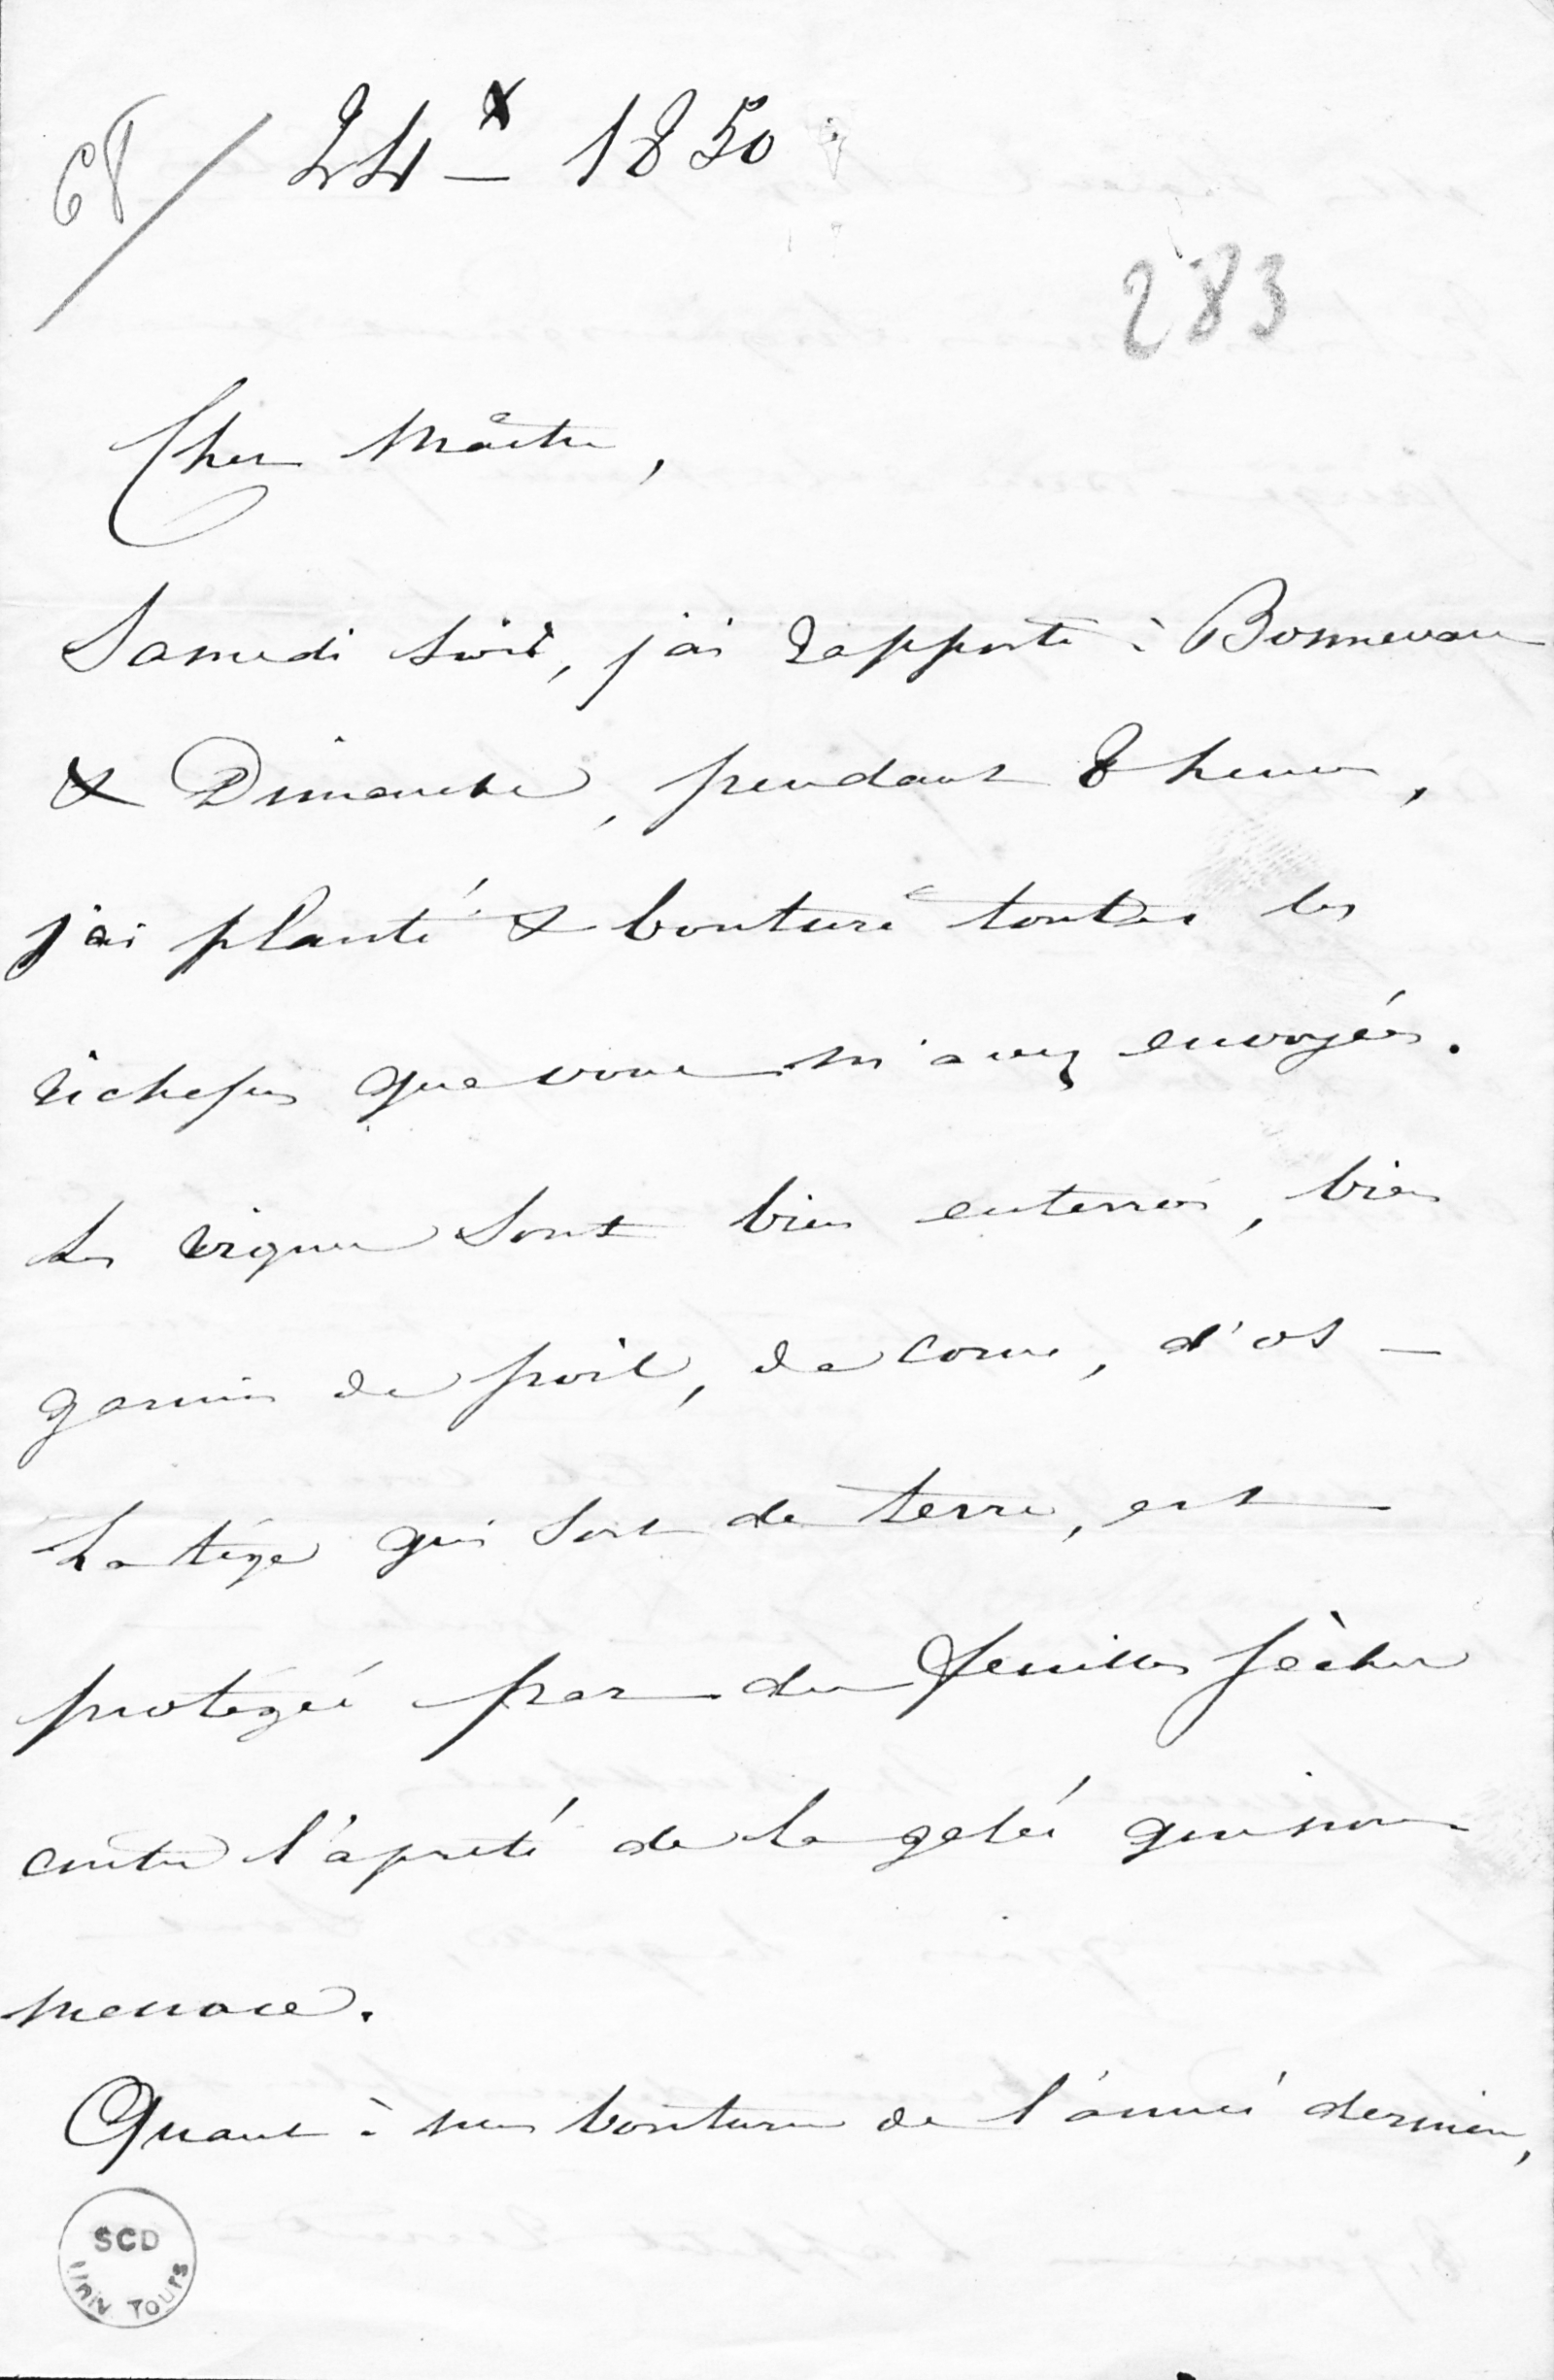 68/
24 x – 1850
283
Cher Maître,
Samedi soir, j'ai rapporté à Bonneveau
& Dimanche, pendant 8 heures,
j'ai planté & bouturé toutes les
richesses que vous m'avez envoyées.
Les vignes sont bien enterrées, bien
garnies de poil, de corne, d'os –
La tige qui sort de terre, est
protégée par des feuilles sèches
contre l'apreté de la gelée qui nous
menace.
Quant à mes boutures de l'année dernière,
SCD
Univ TOURS